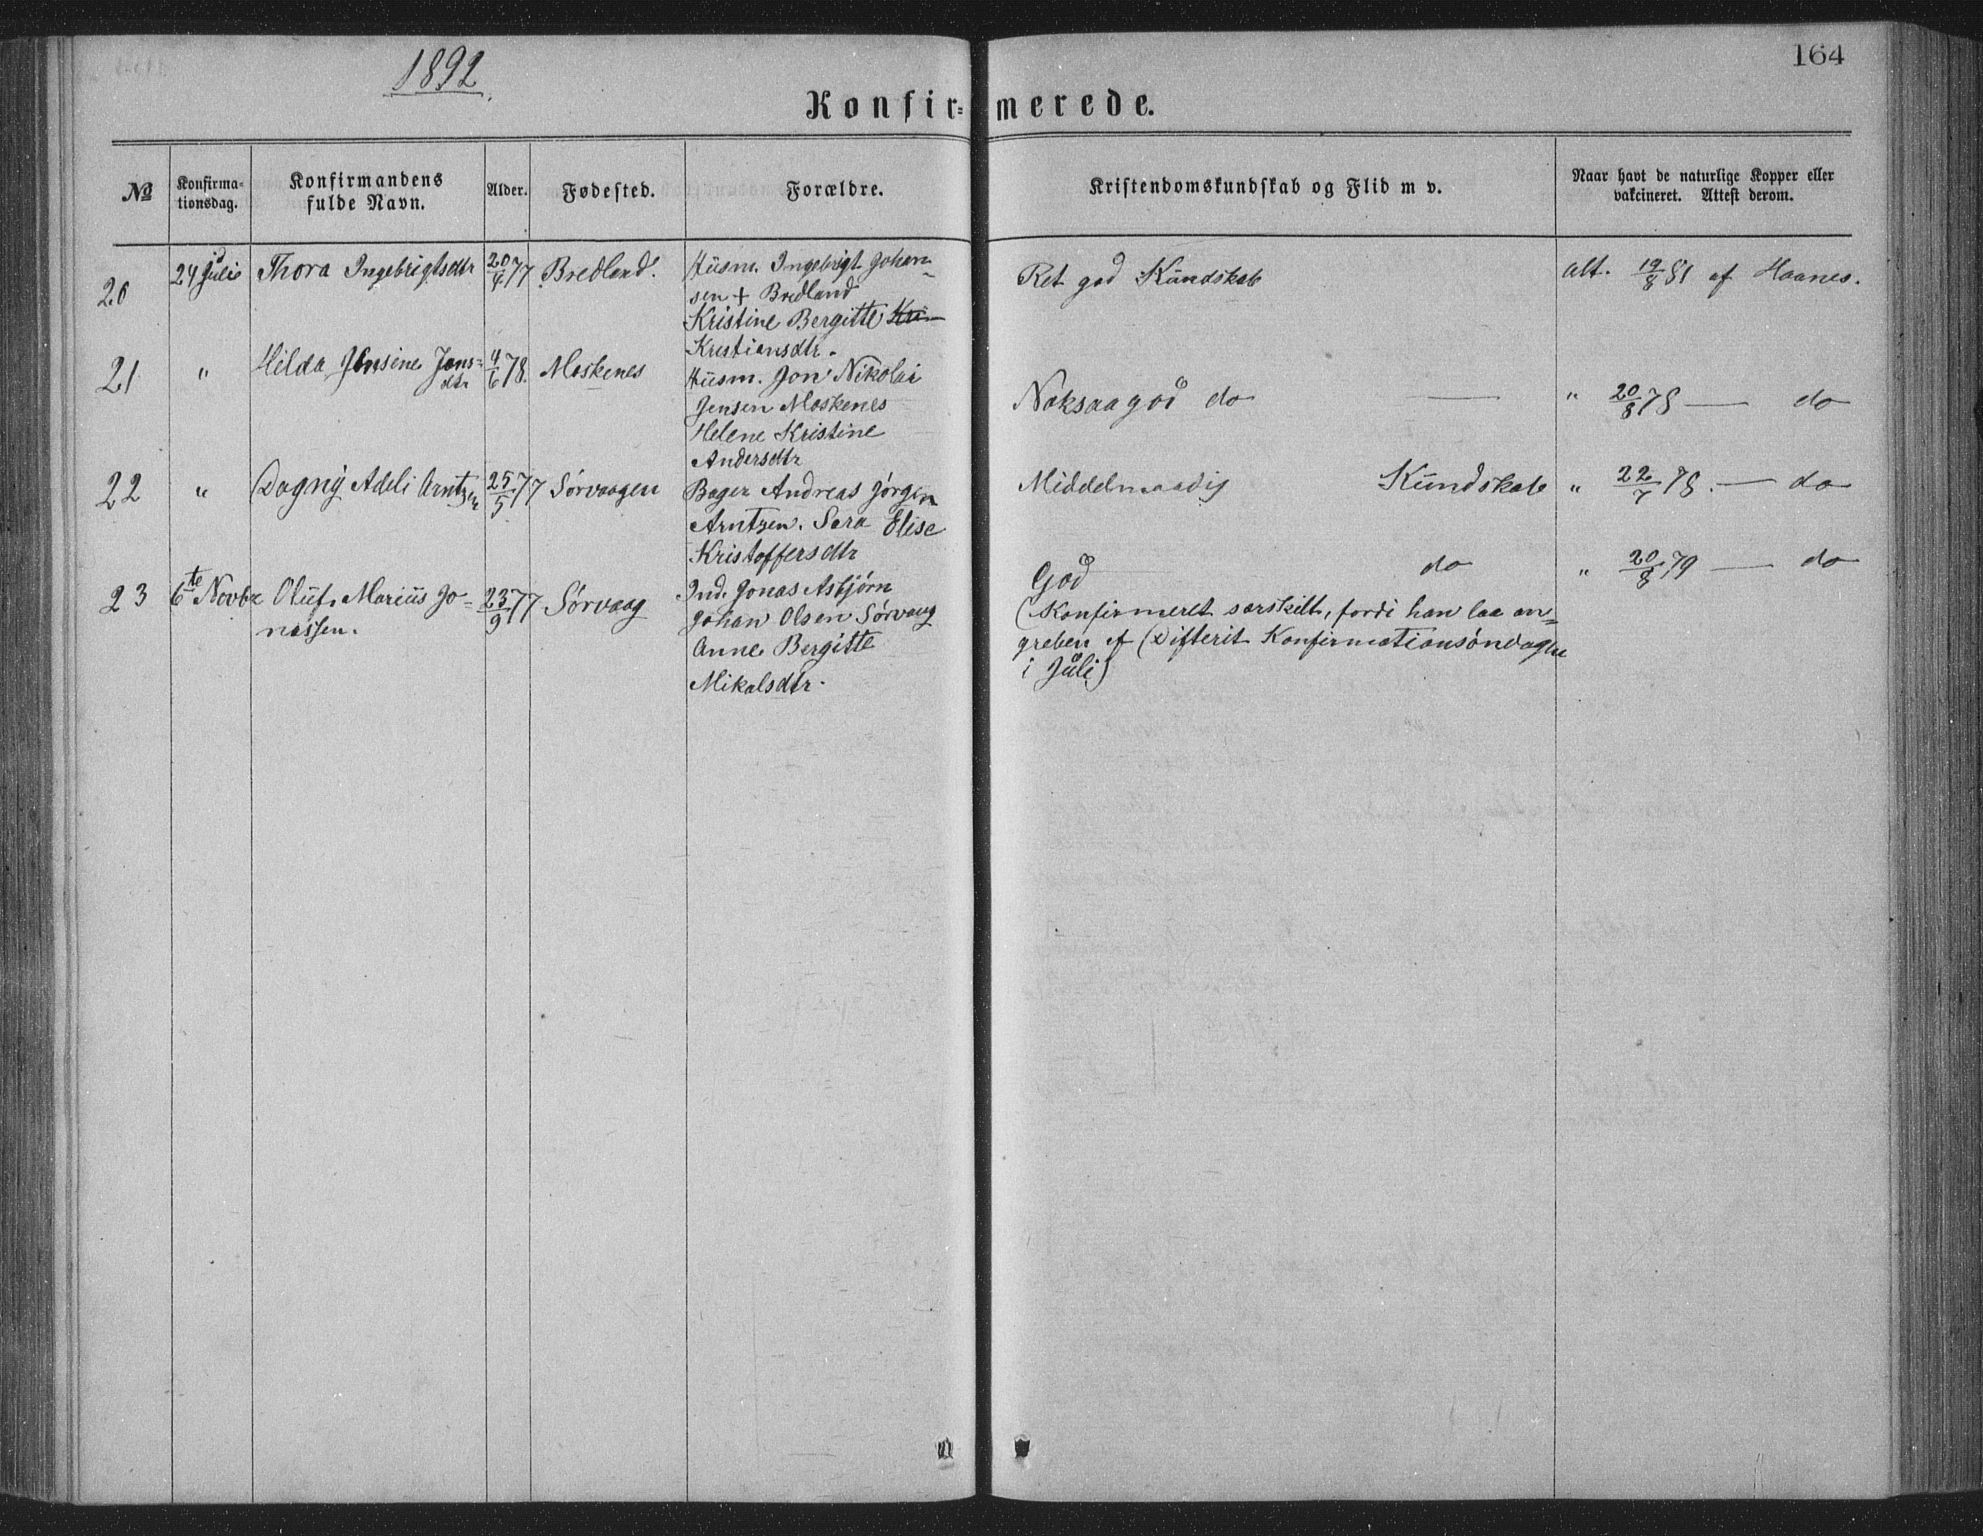 1892
164
Konfirmerede.
№
Konfirma-
tionsdag.
Konfirmandens
fulde Navn.
Alder.
Fødested.
Forældre.
Kristendomskundskab og Flid m v.
Naar havt de naturlige Kopper eller
vakcineret. Attest derom.
20 24 Juli Thora Ingebrigtsdtr 20/4 77 Bredland.
Husm. Ingebrigt Johan-
sen + Bredland
Kristine Bergitte Kri
Kristiansdtr.
Ret god Kundskab
Att. 19/8 81 af Haanes.
21 " Hilda Jensine Jons-
dtr 4/6 78. Moskenes
Husm. Jon Nikolai
Jensen Moskenes
Helene Kristine
Andersdtr
Noksaa god do
" 20/8 78 — do
22 " Dagny Adeli Arntzen 25/5 77 Sørvaagen
Bager Andreas Jørgen
Arntzen. Sara Elise
Kristoffersdtr
Middelmaadig Kundskab
" 22/7 78. — do
23 6te Novbr Oluf Marius Jo-
nassen. 23/9 77 Sørvaag
Ind. Jonas Asbjørn
Johan Olsen Sørvaag
Anne Bergitte
Mikalsdtr.
God do
" 20/8 79 — do
(Konfirmeret særskilt, fordi han laa an-
greben af Difterit Konfirmationsøndagen
i Juli)